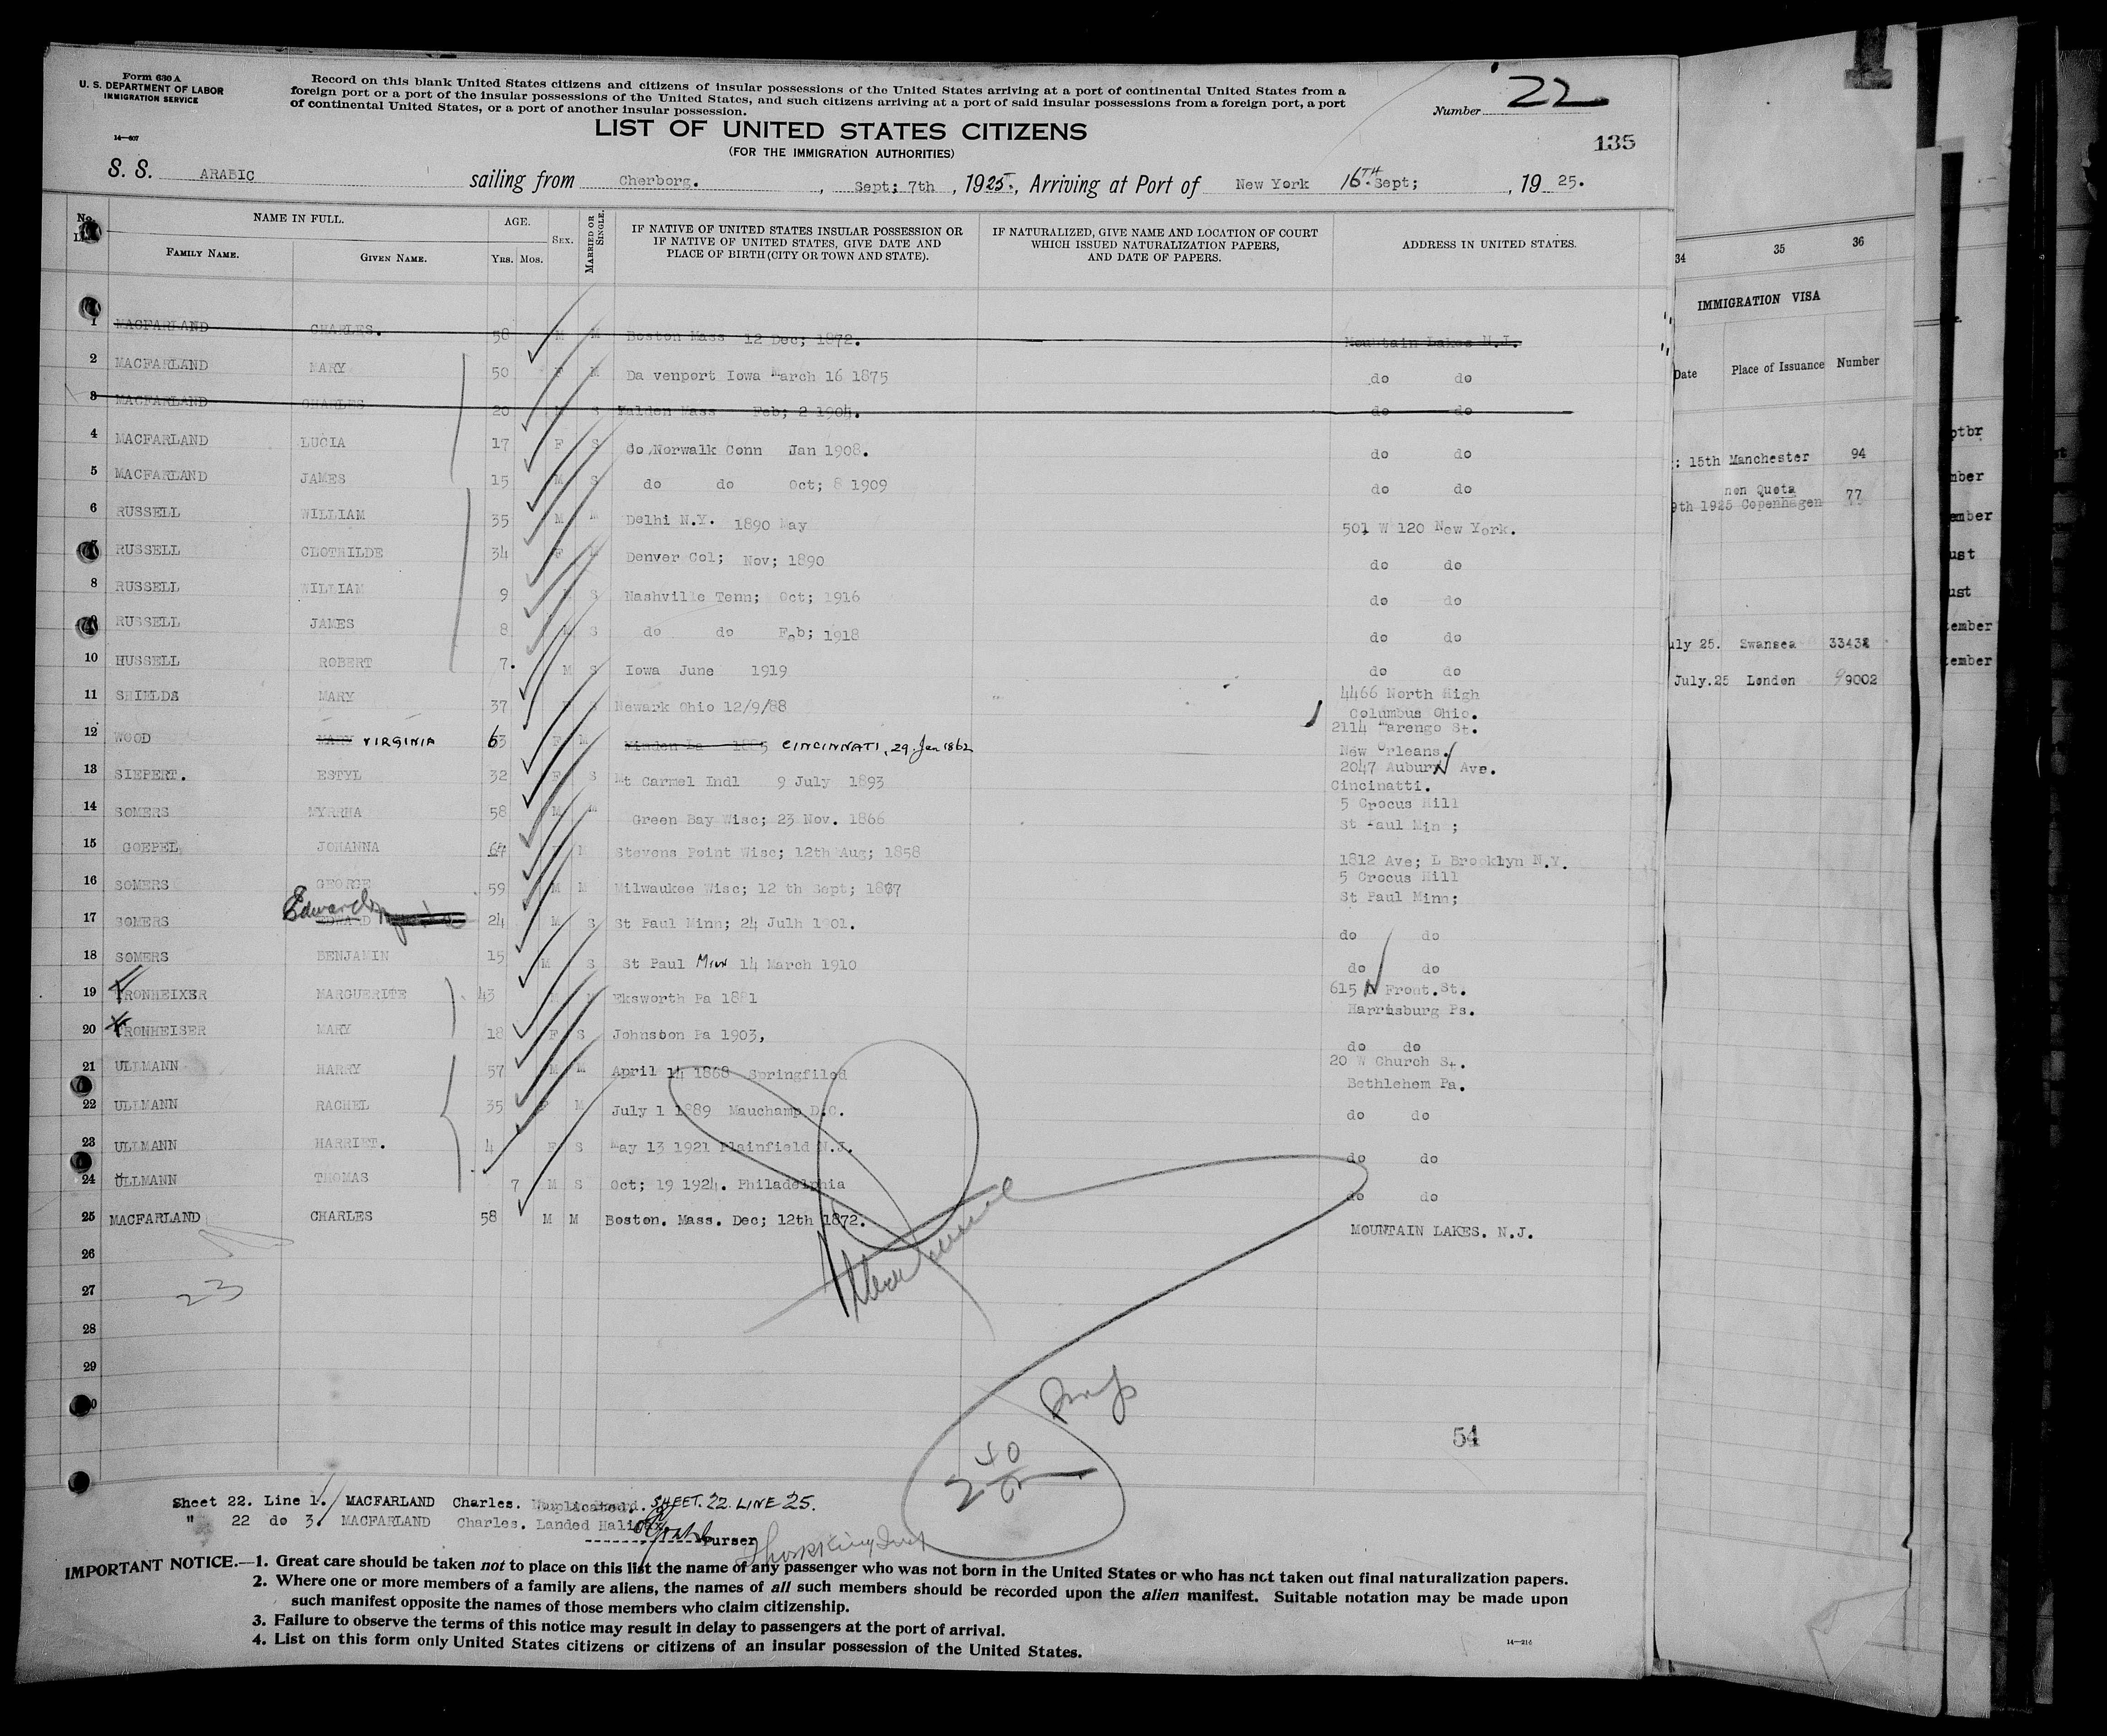 Form 630 A
U. S. DEPARTMENT OF LABOR
IMMIGRATION SERVICE
14—607
Record on this blank United States citizens and citizens of insular possessions of the United States arriving at a port of continental United States from a
foreign port or a port of the insular possessions of the United States, and such citizens arriving at a port of said insular possessions from a foreign port, a port
of continental United States, or a port of another insular possession.
Number 22
135
LIST OF UNITED STATES CITIZENS
(FOR THE IMMIGRATION AUTHORITIES)
S. S. ARABIC sailing from Cherborg. , Sept; 7th , 1925., Arriving at Port of New York 16TH Sept; , 19 25.
NAME IN FULL. AGE. SEX. MARRIED OR SINGLE. IF NATIVE OF UNITED STATES INSULAR POSSESSION OR IF NATIVE OF UNITED STATES, GIVE DATE AND PLACE OF BIRTH (CITY OR TOWN AND STATE). IF NATURALIZED, GIVE NAME AND LOCATION OF COURT WHICH ISSUED NATURALIZATION PAPERS, AND DATE OF PAPERS. ADDRESS IN UNITED STATES.
No. FAMILY NAME. GIVEN NAME. YRS. MOS.
1 MACFARLAND CHARLES. 58 M M Boston Mass 12 Dec; 1872. Mountain Lakes N.J.
2 MACFARLAND MARY 50 F M Da venport Iowa March 16 1875 do do
3 MACFARLAND CHARLES 20 M S Malden Mass Feb; 2 1904. do do
4 MACFARLAND LUCIA 17 F S do Norwalk Conn Jan 1908. do do
5 MACFARLAND JAMES 15 M S do do Oct; 8 1909 do do
6 RUSSELL WILLIAM 35 M M Delhi N.Y. 1890 May 501 W 120 New York.
7 RUSSELL CLOTHILDE 34 F M Denver Col; Nov; 1890 do do
8 RUSSELL WILLIAM 9 M S Nashville Tenn; Oct; 1916 do do
RUSSELL JAMES 8 M S do do Feb; 1918 do do
10 HUSSELL ROBERT 7. M S Iowa June 1919 do do
11 SHIELDS MARY 37 F S Newark Ohio 12/9/88 4466 North High
Columbus Ohio.
12 WOOD MARY VIRGINIA 63 F M Minden La 1885 CINCINNATI, 29. Jan 1862 2114 Marengo St.
New Orleans.
13 SIEPERT. ESTYL 32 F S Mt Carmel Indl 9 July 1893 2047 Auburn Ave.
Cincinatti.
14 SOMERS MYRRHA 58 M M Green Bay Wisc; 23 Nov. 1866 5 Crocus Hill
St Paul Min ;
15 GOEPEL JOHANNA 67 F M Stevens Point Wisc; 12th Aug; 1858 1812 Ave; L Brooklyn N.Y.
16 SOMERS GEORGE 59 M M Milwaukee Wisc; 12 th Sept; 1867 5 Crocus Hill
St Paul Minn;
17 SOMERS Edward EDWARD 24 M S St Paul Minn; 24 Julh 1901. do do
18 SOMERS BENJAMIN 15 M S St Paul Minn 14 March 1910 do do
19 FRONHEIXER MARGUERITE 43 Eksworth Pa 1881 615 N Front.St.
Harrisburg Ps.
20 FRONHEISER MARY 18 F S Johnston Pa 1903, do do
21 ULLMANN HARRY 57 M M April 14 1868 Springfiled 20 W Church St.
Bethlehem Pa.
22 ULLMANN RACHEL 35 F M July 1 1889 Mauchamp D.C. do do
23 ULLMANN HARRIET. 4 F S May 13 1921 Plainfield N.J. do do
24 ULLMANN THOMAS 7 M S Oct; 19 1924. Philadelphia do do
25 MACFARLAND CHARLES 58 M M Boston. Mass. Dec; 12th 1872. MOUNTAIN LAKES. N.J.
26
27 23
28
29
54
Sheet 22. Line 1. MACFARLAND Charles. Duplicated. SHEET. 22. LINE 25.
" 22 do 3. MACFARLAND Charles. Landed Halifax
Purser
IMPORTANT NOTICE.—1. Great care should be taken not to place on this list the name of any passenger who was not born in the United States or who has not taken out final naturalization papers.
2. Where one or more members of a family are aliens, the names of all such members should be recorded upon the alien manifest. Suitable notation may be made upon
such manifest opposite the names of those members who claim citizenship.
3. Failure to observe the terms of this notice may result in delay to passengers at the port of arrival.
4. List on this form only United States citizens or citizens of an insular possession of the United States.
34 35 36
IMMIGRATION VISA
Date Place of Issuance Number
15th Manchester 94
non Quota
9th 1925 Copenhagen 77
uly 25. Swansea 33438
July.25 London 99002